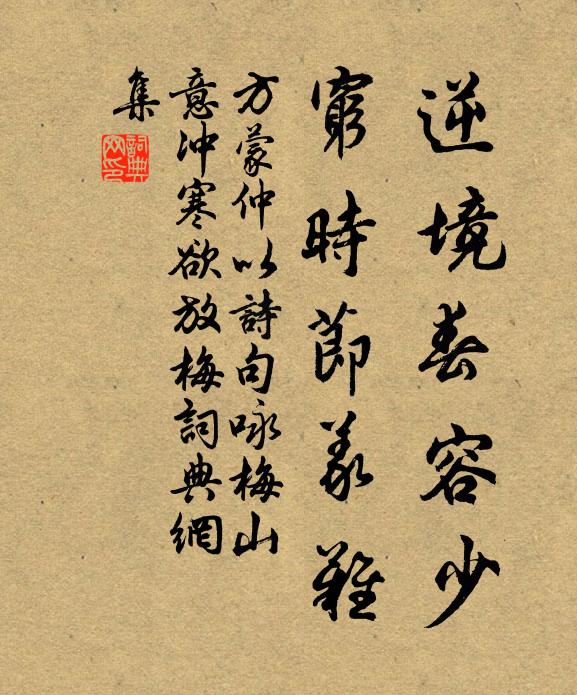 逆境春容少
窮時節義難
方蒙仲以詩句咏梅山
意冲寒欲放梅詞典網
集
詞典
网印